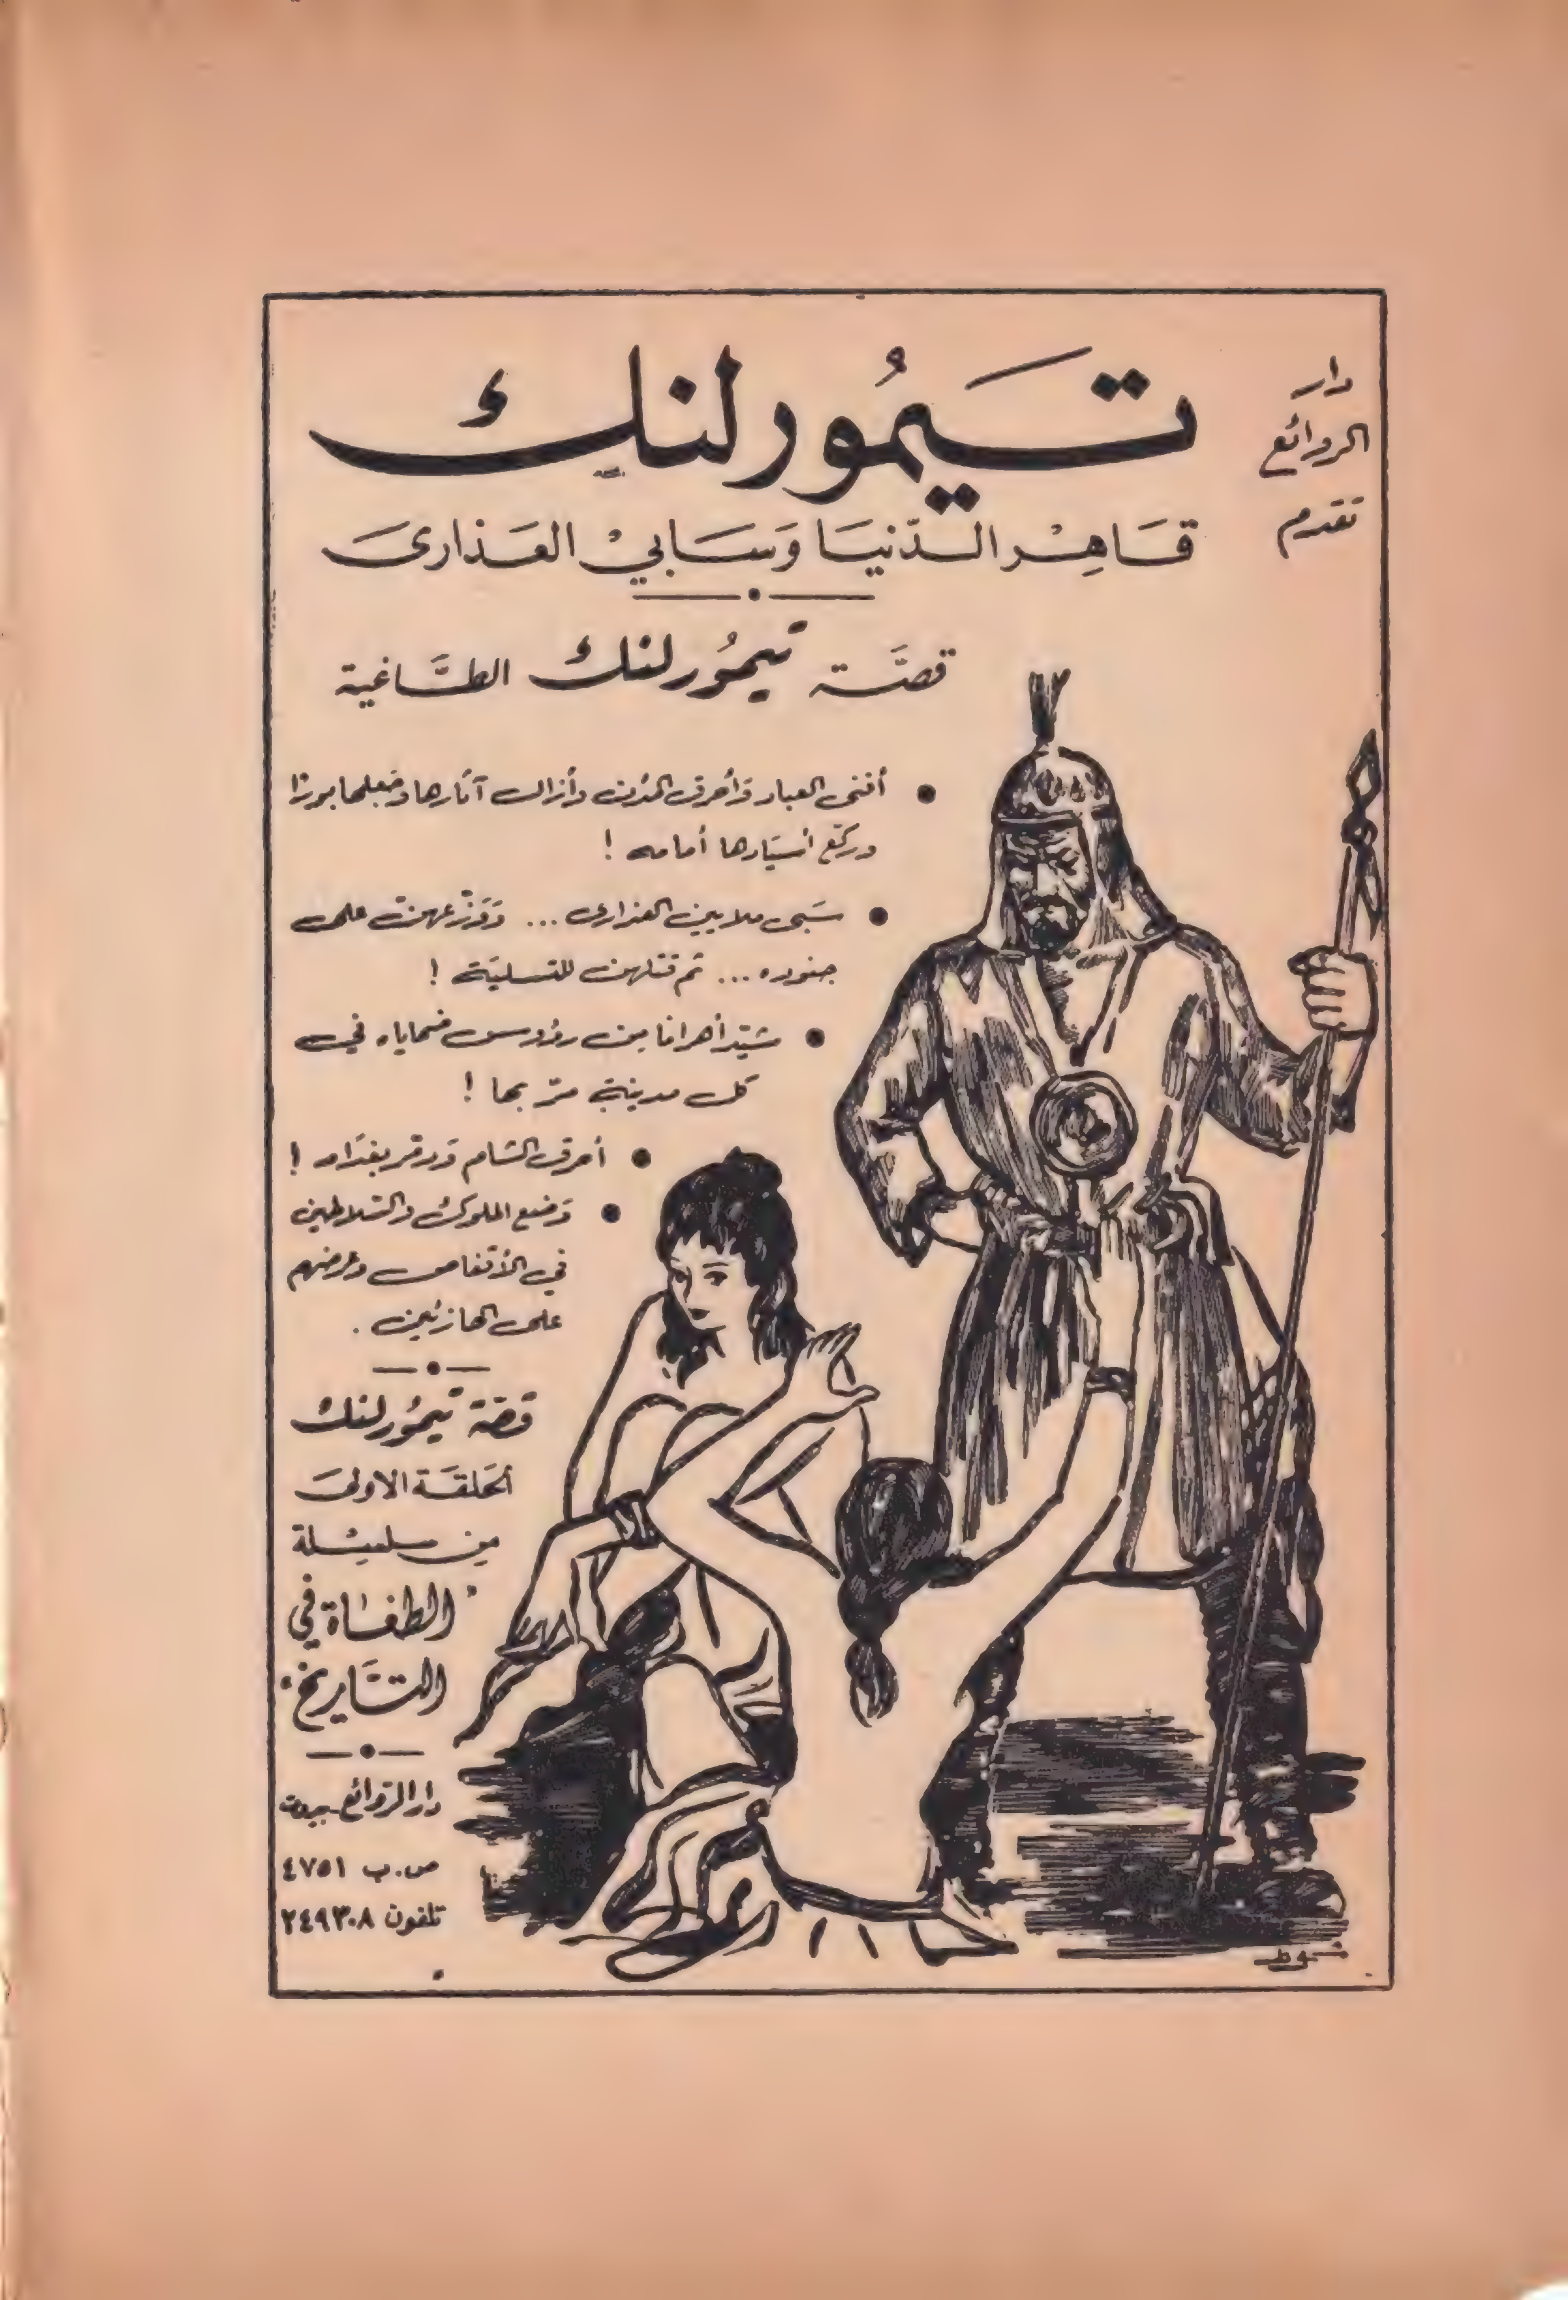 دار
الروائع
تقدم
تَيمُورلنك
قَاهِرْ الدّنيَا وَسَابيْ العَذارىَ
قصَّة تيمُورلنك الطَّاغية
• أفنى العباد وَأحرق المدُن وأزال آثارها وجعلها بورًا
وركّع أسيَادها أمامه !
• سَبى ملايين العذارى ... وَوَزّعهنّ على
جنوده ... ثم قتلهن للتسليَة !
• شيّد أهرامًا من رؤوس ضحاياه في
كل مدينة مرّ بها !
• أحرق الشام وَدمّر بغدَاد !
• وَضع الملوك والسّلاطين
في الأقفاص وعرضهم
على الهازئين .
قصّة تيمُورلنك
الحَلقَة الاولىَ
من سلسِلة
"الطغاة في
التَّاريخ"
دار الرّوائع - بيروت
ص.ب ٤٧٥١
تلفون ٢٤٩٣٠٨